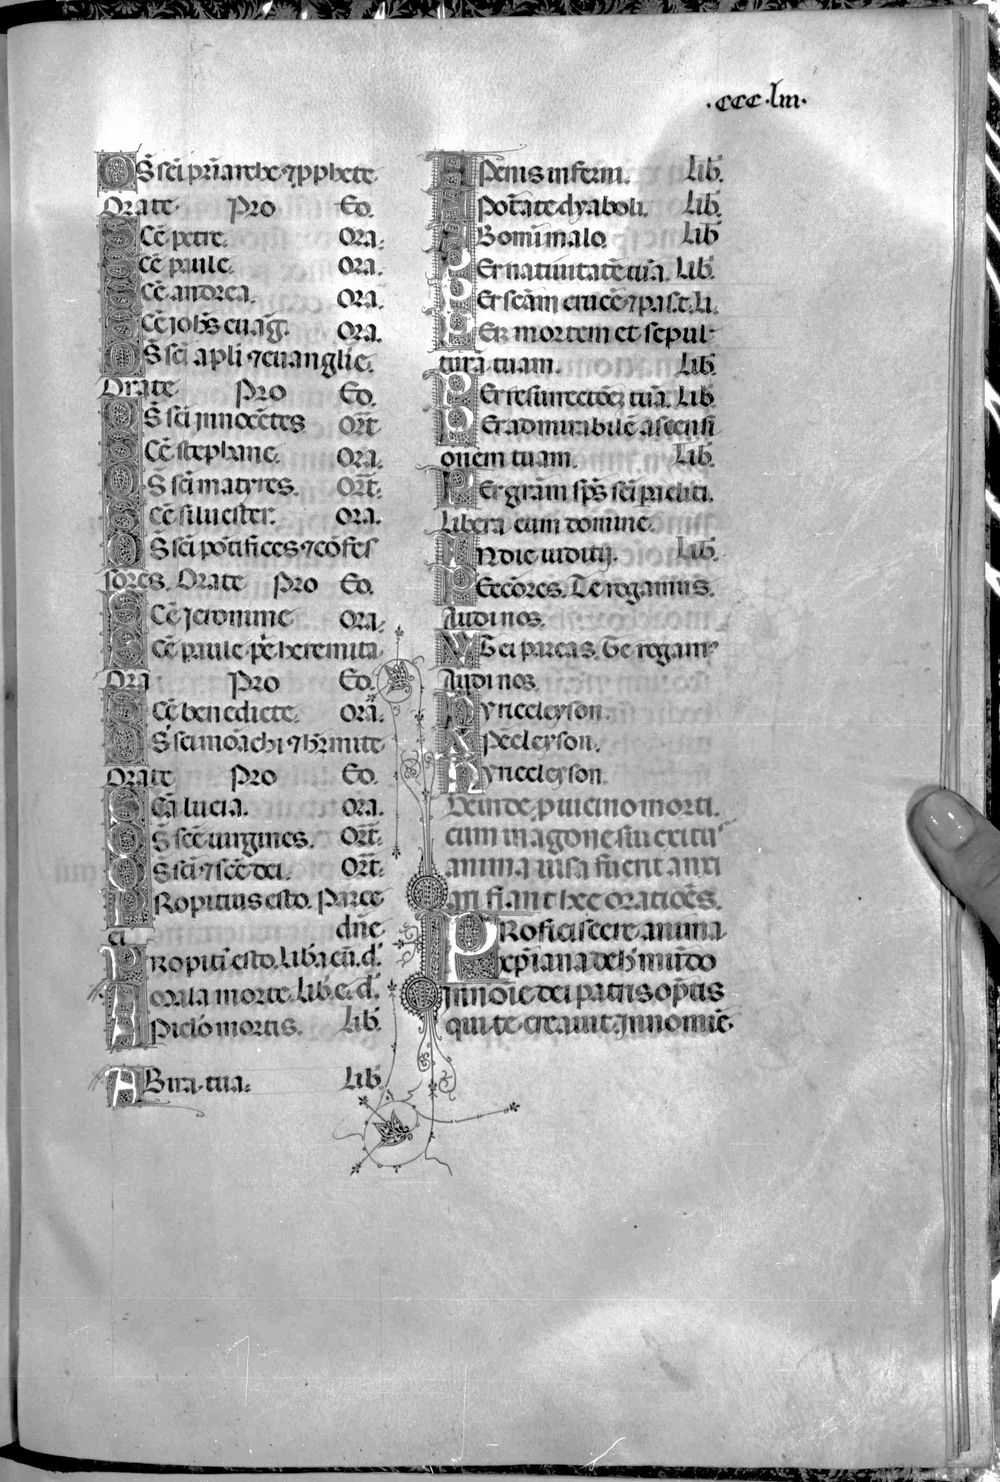 .ccc.lııı.
OS̄ sc̄i pr̄iarche ⁊ pphete
Orate Pro Eo.
SCē petre. Ora.
SCē paule. Ora.
SCē andrea. Ora.
SCē joh̄s euāg. Ora.
OS̄ sc̄i apl̄i ⁊ euanglīe.
Orate Pro Eo.
OS̄ sc̄i jnnocētes Ort̄
SCē stephane. Ora.
OS̄ sc̄i martyres. Ort̄.
SCē siluester. Ora.
OS̄ sc̄i pōtifices ⁊ cōfes
sores. Orate Pro Eo.
SCē Jeronime Ora.
SCē paule pͥe heremita
Ora Pro Eo.
SCē benedicte. Ora.
OS̄ sc̄i mōachi ⁊ hr̄mite
Orate Pro Eo.
SCā lucia. Ora.
OS̄ sc̄e uirgines. Ort̄.
OS̄ sc̄i ⁊ sc̄e dei. Ort̄.
PRopitius esto. Parce
ei dn̄e
PRopitꝰ esto. Lib̄a eū. d̄
Amala morte. Lib̄. e. d̄.
APiclo mortis. Lib̄.
ABira tua. Lib̄.
APenis inferni. Lib̄.
APotāte dyaboli. Lib̄.
ABomi malo. Lib̄
PEr natiuitatē tuā. Lib̄.
PEr scām crucē ⁊ pas.t. Li.
PEr mortem et sepul
turā tuam. Lib̄.
PEr resurrectōeꝫ tuā. Lib̄
PEr admirabilē ascensi
onem tuam. Lib̄.
PEr grām sp̄s sc̄i pacliti.
Libera eum domine.
INdie iuditij. Lib̄.
PEccōres. Te rogamus.
Audi nos.
VTei parcas. Te rogamꝰ
Audi nos.
Kyrieeleyson.
XPeeleyson.
Kyrieeleyson.
Deinde, p uicino morti.
cum in agone siu exitu
anima uisa fuerit anxi
ari fiant hec oratiōes.
PRoficiscere anima
xpīana de h̄ mūdo
Jnnoīe dei patris op̄tis
qui te creauit. Jnnomīe